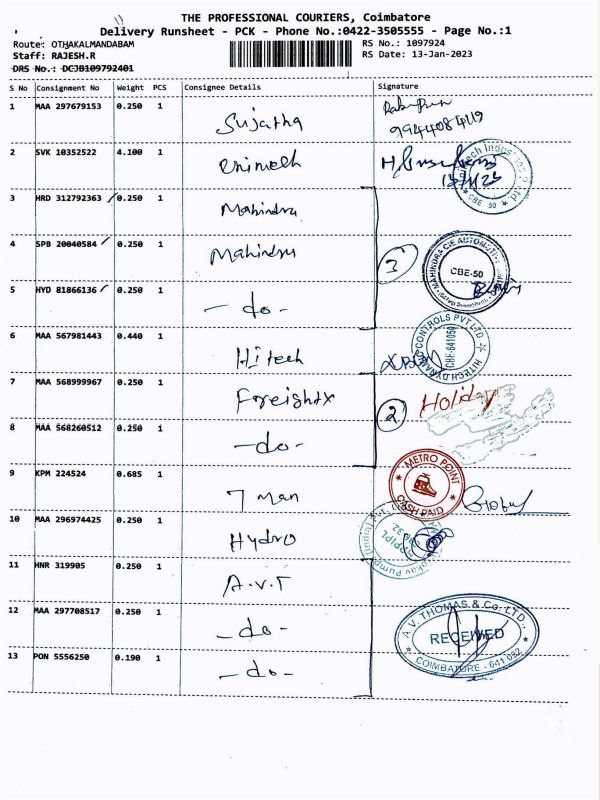 THE PROFESSIONAL COURIERS, Coimbatore
Delivery Runsheet - PCK - Phone No.:0422-3505555 - Page No.:1
Route: OTHAKALMANDABAM
RS No.: 1097924
Staff: RAJESH.R
RS Date: 13-Jan-2023
DRS No.: DCJB109792401
S No Consignment No Weight PCS Consignee Details Signature
1 MAA 297679153 0.250 1 Sujatha
9944084119
2 SVK 10352522 4.100 1
CBE 50
3 HRD 312792363 0.250 1 Mahindra
4 SPB 20040584 0.250 1 Mahindra
3
MAHINDRA CIE AUTOMOTIVE
CBE-50
5 HYD 81866136 0.250 1 - do -
6 MAA 567981443 0.440 1 Hitech
HITECH DYNA CONTROLS PVT LTD
CBE-641050
7 MAA 568999967 0.250 1 Freightx
2 Holiday
8 MAA 568260512 0.250 1 - do -
9 KPM 224524 0.685 1 T Man
METRO POINT
CASH PAID
10 MAA 296974425 0.250 1 Hydro
11 HNR 319905 0.250 1 A.V.T
12 MAA 297708517 0.250 1 - do -
A.V. THOMAS & Co. LTD.,
RECEIVED
COIMBATORE - 641 032
13 PON 5556250 0.190 1 - do -